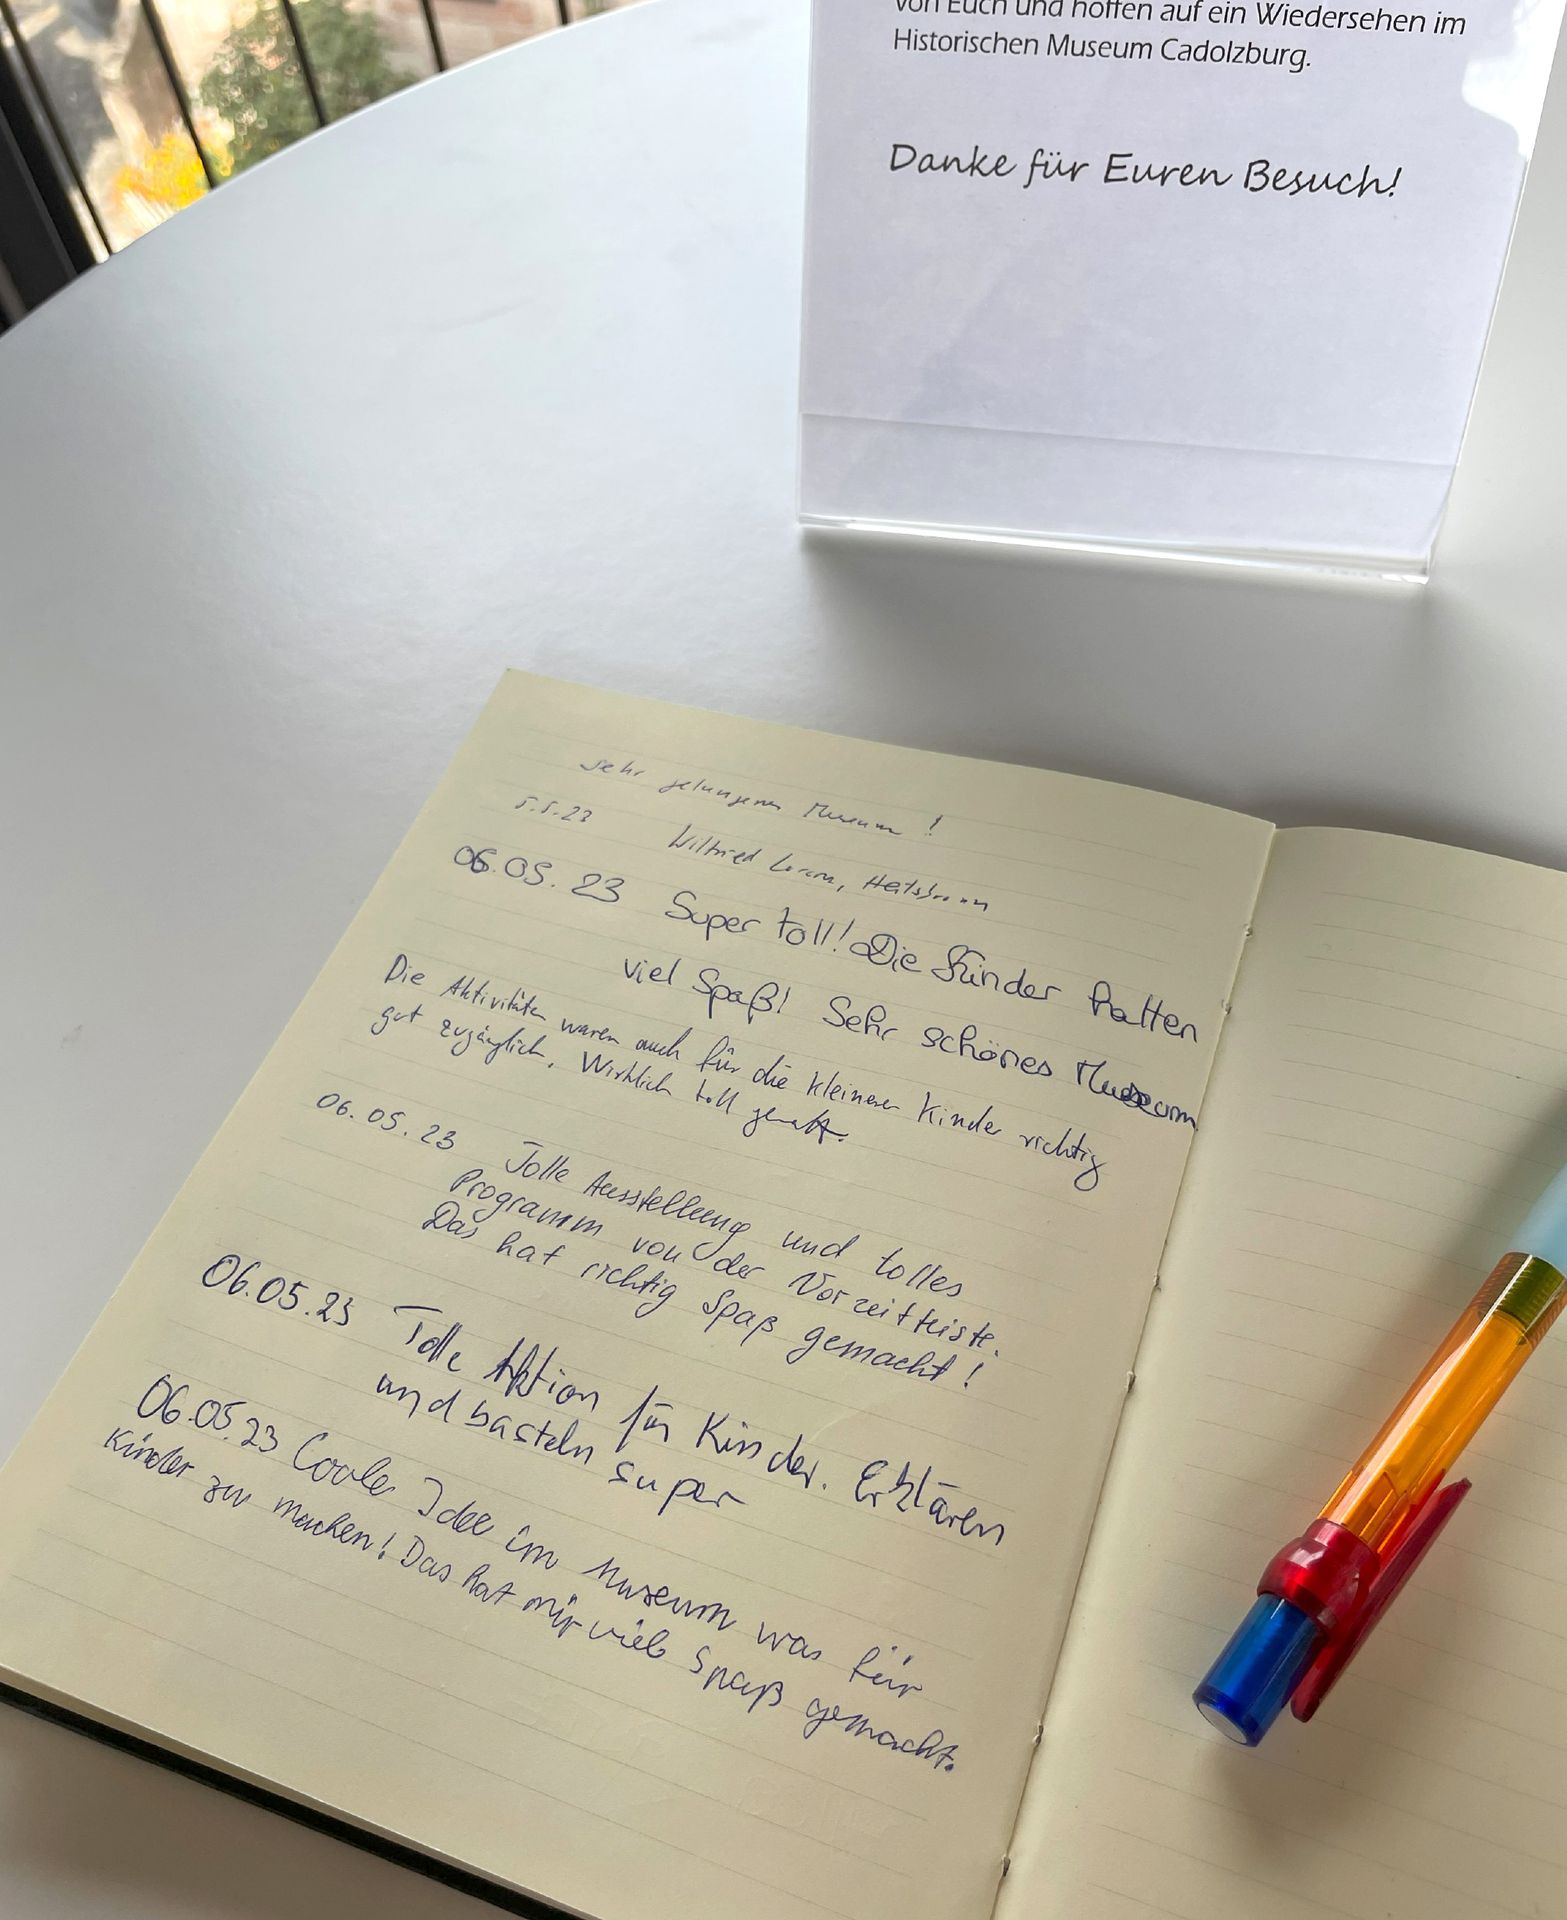 von Euch und hoffen auf ein Wiedersehen im
Historischen Museum Cadolzburg.
Danke für Euren Besuch!
Sehr gelungenes Museum!
5.5.23 Wilfried
06.05.23 Super toll! Die Kinder hatten
viel Spaß! Sehr schönes Museum
Die Aktivitäten waren auch für die kleineren Kinder richtig
gut zugänglich. Wirklich toll gemacht.
06.05.23 Tolle Ausstellung und tolles
Programm von der Vorzeitkiste.
Das hat richtig Spaß gemacht!
06.05.23 Tolle Aktion für Kinder. Erklären
und basteln super
06.05.23 Coole Idee im Museum was für
Kinder zu machen! Das hat mir viel Spaß gemacht.